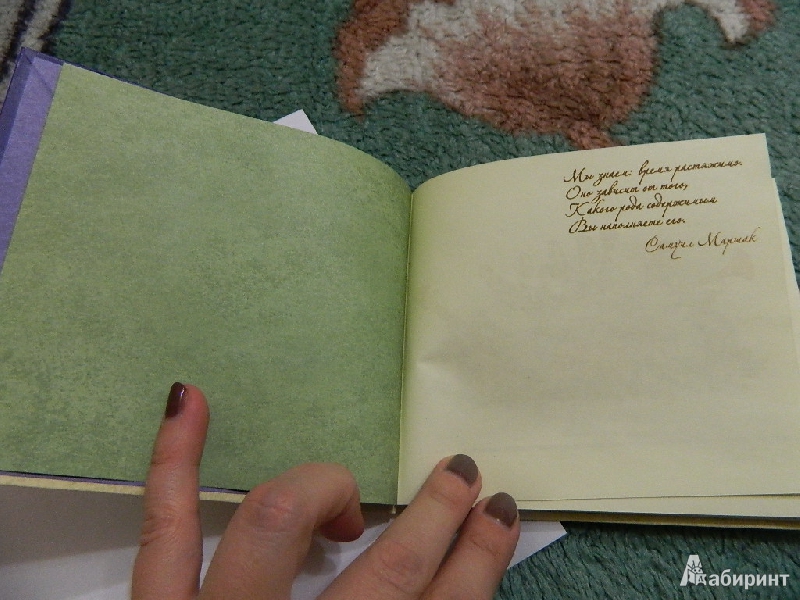 Мы знаем: время растяжимо.
Оно зависит от того,
Какого рода содержимым
Вы наполняете его.
Самуил Маршак
Лабиринт